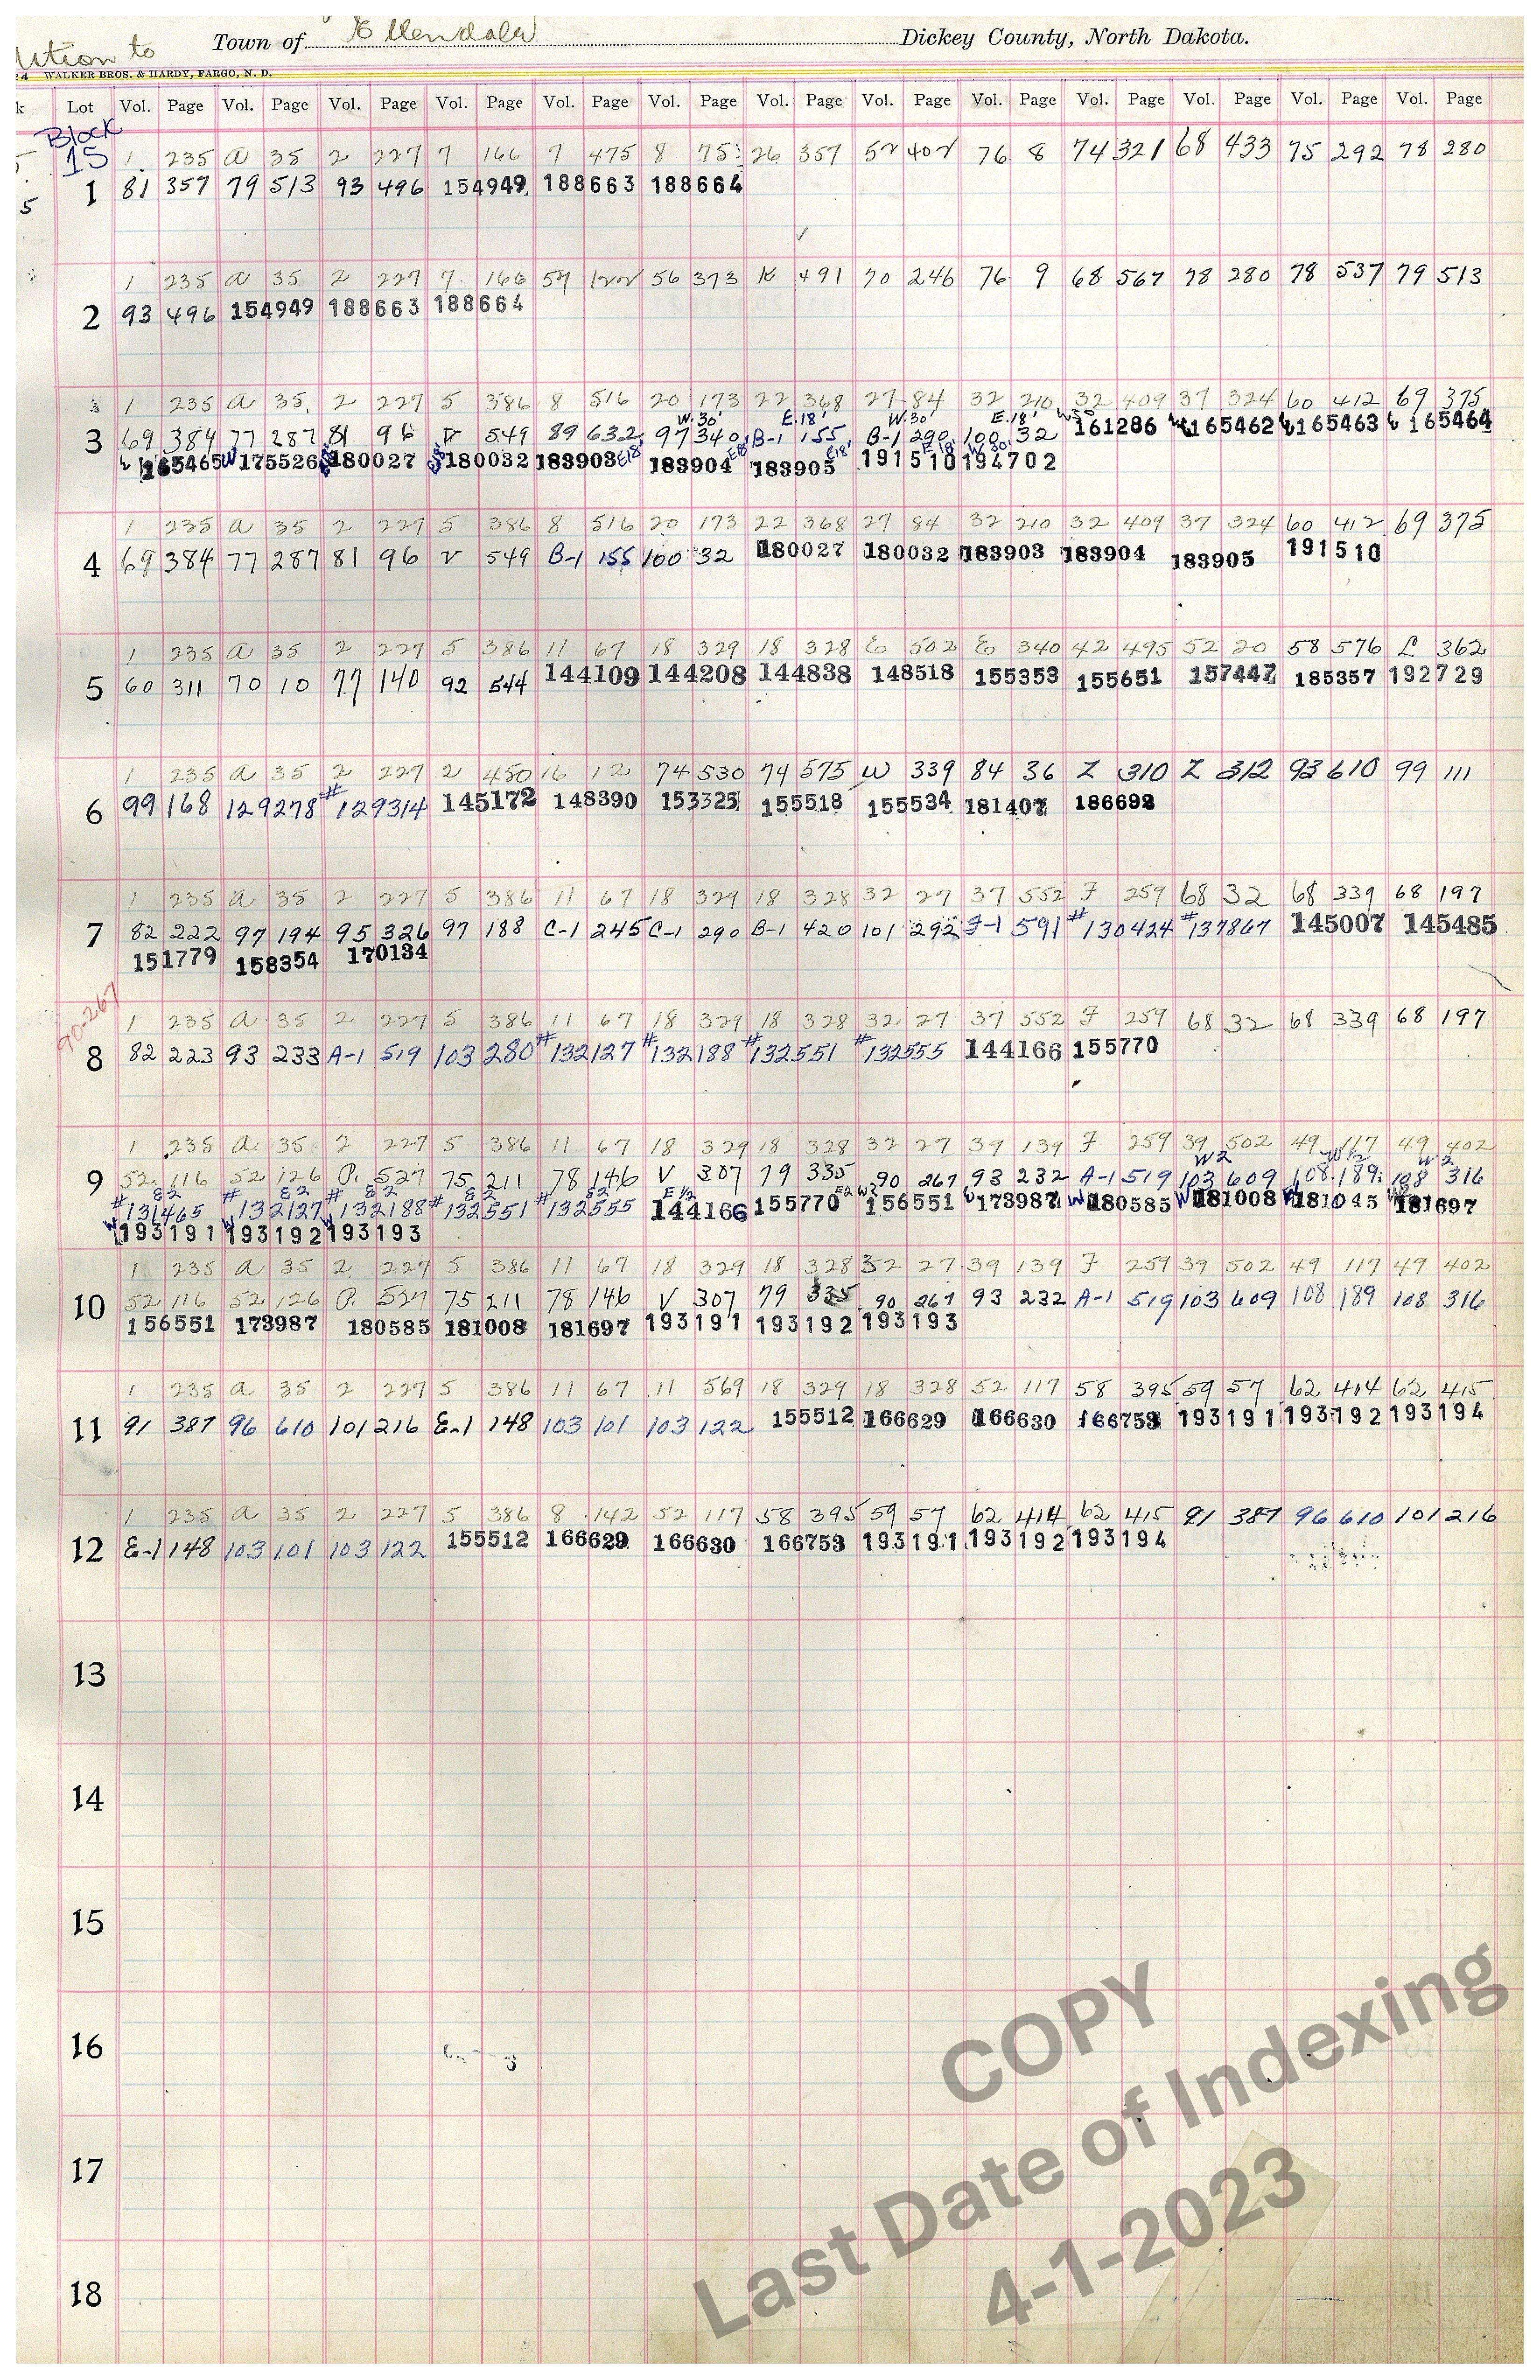 Town of Ellendale Dickey County, North Dakota.
ition to
24 WALKER BROS. & HARDY, FARGO, N. D.
k Lot Vol. Page Vol. Page Vol. Page Vol. Page Vol. Page Vol. Page Vol. Page Vol. Page Vol. Page Vol. Page Vol. Page Vol. Page Vol. Page
Block
15 1 235 a 35 2 227 7 166 7 475 8 75 26 357 52 402 76 8 74 321 68 433 75 292 78 280
1 81 357 79 513 93 496 154949 188663 188664
5
1 235 a 35 2 227 7 166 57 122 56 373 K 491 70 246 76 9 68 567 78 280 78 537 79 513
2 93 496 154949 188663 188664
1 235 a 35 2 227 5 386 8 516 20 173 22 368 27 84 32 210 32 409 37 324 60 412 69 375
W.30' E.18' W.30' E.18' W30
3 69 384 77 287 81 96 V 549 89 632 97 340 B-1 155 B-1 290 100 32 161286 165462 165463 165464
165465 W 175526 180027 E18' 180032 183903 E18' 183904 E18' 183905 E18' 191510 E18' 194702 W 30'
1 235 a 35 2 227 5 386 8 516 20 173 22 368 27 84 32 210 32 409 37 324 60 412 69 375
4 69 384 77 287 81 96 V 549 B-1 155 100 32 180027 180032 183903 183904 183905 191510
1 235 a 35 2 227 5 386 11 67 18 329 18 328 E 502 E 340 42 495 52 20 58 576 L 362
5 60 311 70 10 77 140 92 544 144109 144208 144838 148518 155353 155651 157447 185357 192729
1 235 a 35 2 227 2 450 16 12 74 530 74 575 W 339 84 36 Z 310 Z 312 93 610 99 111
6 99 168 129278 #129314 145172 148390 153325 155518 155534 181407 186692
1 235 a 35 2 227 5 386 11 67 18 329 18 328 32 27 37 552 F 259 68 32 68 339 68 197
7 82 222 97 194 95 326 97 188 C-1 245 C-1 290 B-1 420 101 292 F-1 591 #130424 #137867 145007 145485
151779 158354 170134
90-267
1 235 a 35 2 227 5 386 11 67 18 329 18 328 32 27 37 552 F 259 68 32 68 339 68 197
8 82 223 93 233 A-1 519 103 280 #132127 #132188 #132551 #132555 144166 155770
1 235 a 35 2 227 5 386 11 67 18 329 18 328 32 27 39 139 F 259 39 502 49 117 49 402
W2 W 1/2 W2
9 52 116 52 126 P. 527 75 211 78 146 V 307 79 335 90 267 93 232 A-1 519 103 609 108 189 108 316
E2 E2 E2 E2 E2 E 1/2
#131465 #132127 #132188 #132551 #132555 144166 155770 E2 W2 156551 173987 W 180585 W 181008 181045 181697
W 193191 W 193192 W 193193
1 235 a 35 2 227 5 386 11 67 18 329 18 328 32 27 39 139 F 259 39 502 49 117 49 402
10 52 116 52 126 P. 527 75 211 78 146 V 307 79 335 90 267 93 232 A-1 519 103 609 108 189 108 316
156551 173987 180585 181008 181697 193191 193192 193193
1 235 a 35 2 227 5 386 11 67 11 569 18 329 18 328 52 117 58 395 59 57 62 414 62 415
11 91 387 96 610 101 216 E-1 148 103 101 103 122 155512 166629 166630 166753 193191 193192 193194
1 235 a 35 2 227 5 386 8 142 52 117 58 395 59 57 62 414 62 415 91 387 96 610 101 216
12 E-1 148 103 101 103 122 155512 166629 166630 166753 193191 193192 193194
13
14
15
16
17
18
COPY
Last Date of Indexing
4-1-2023